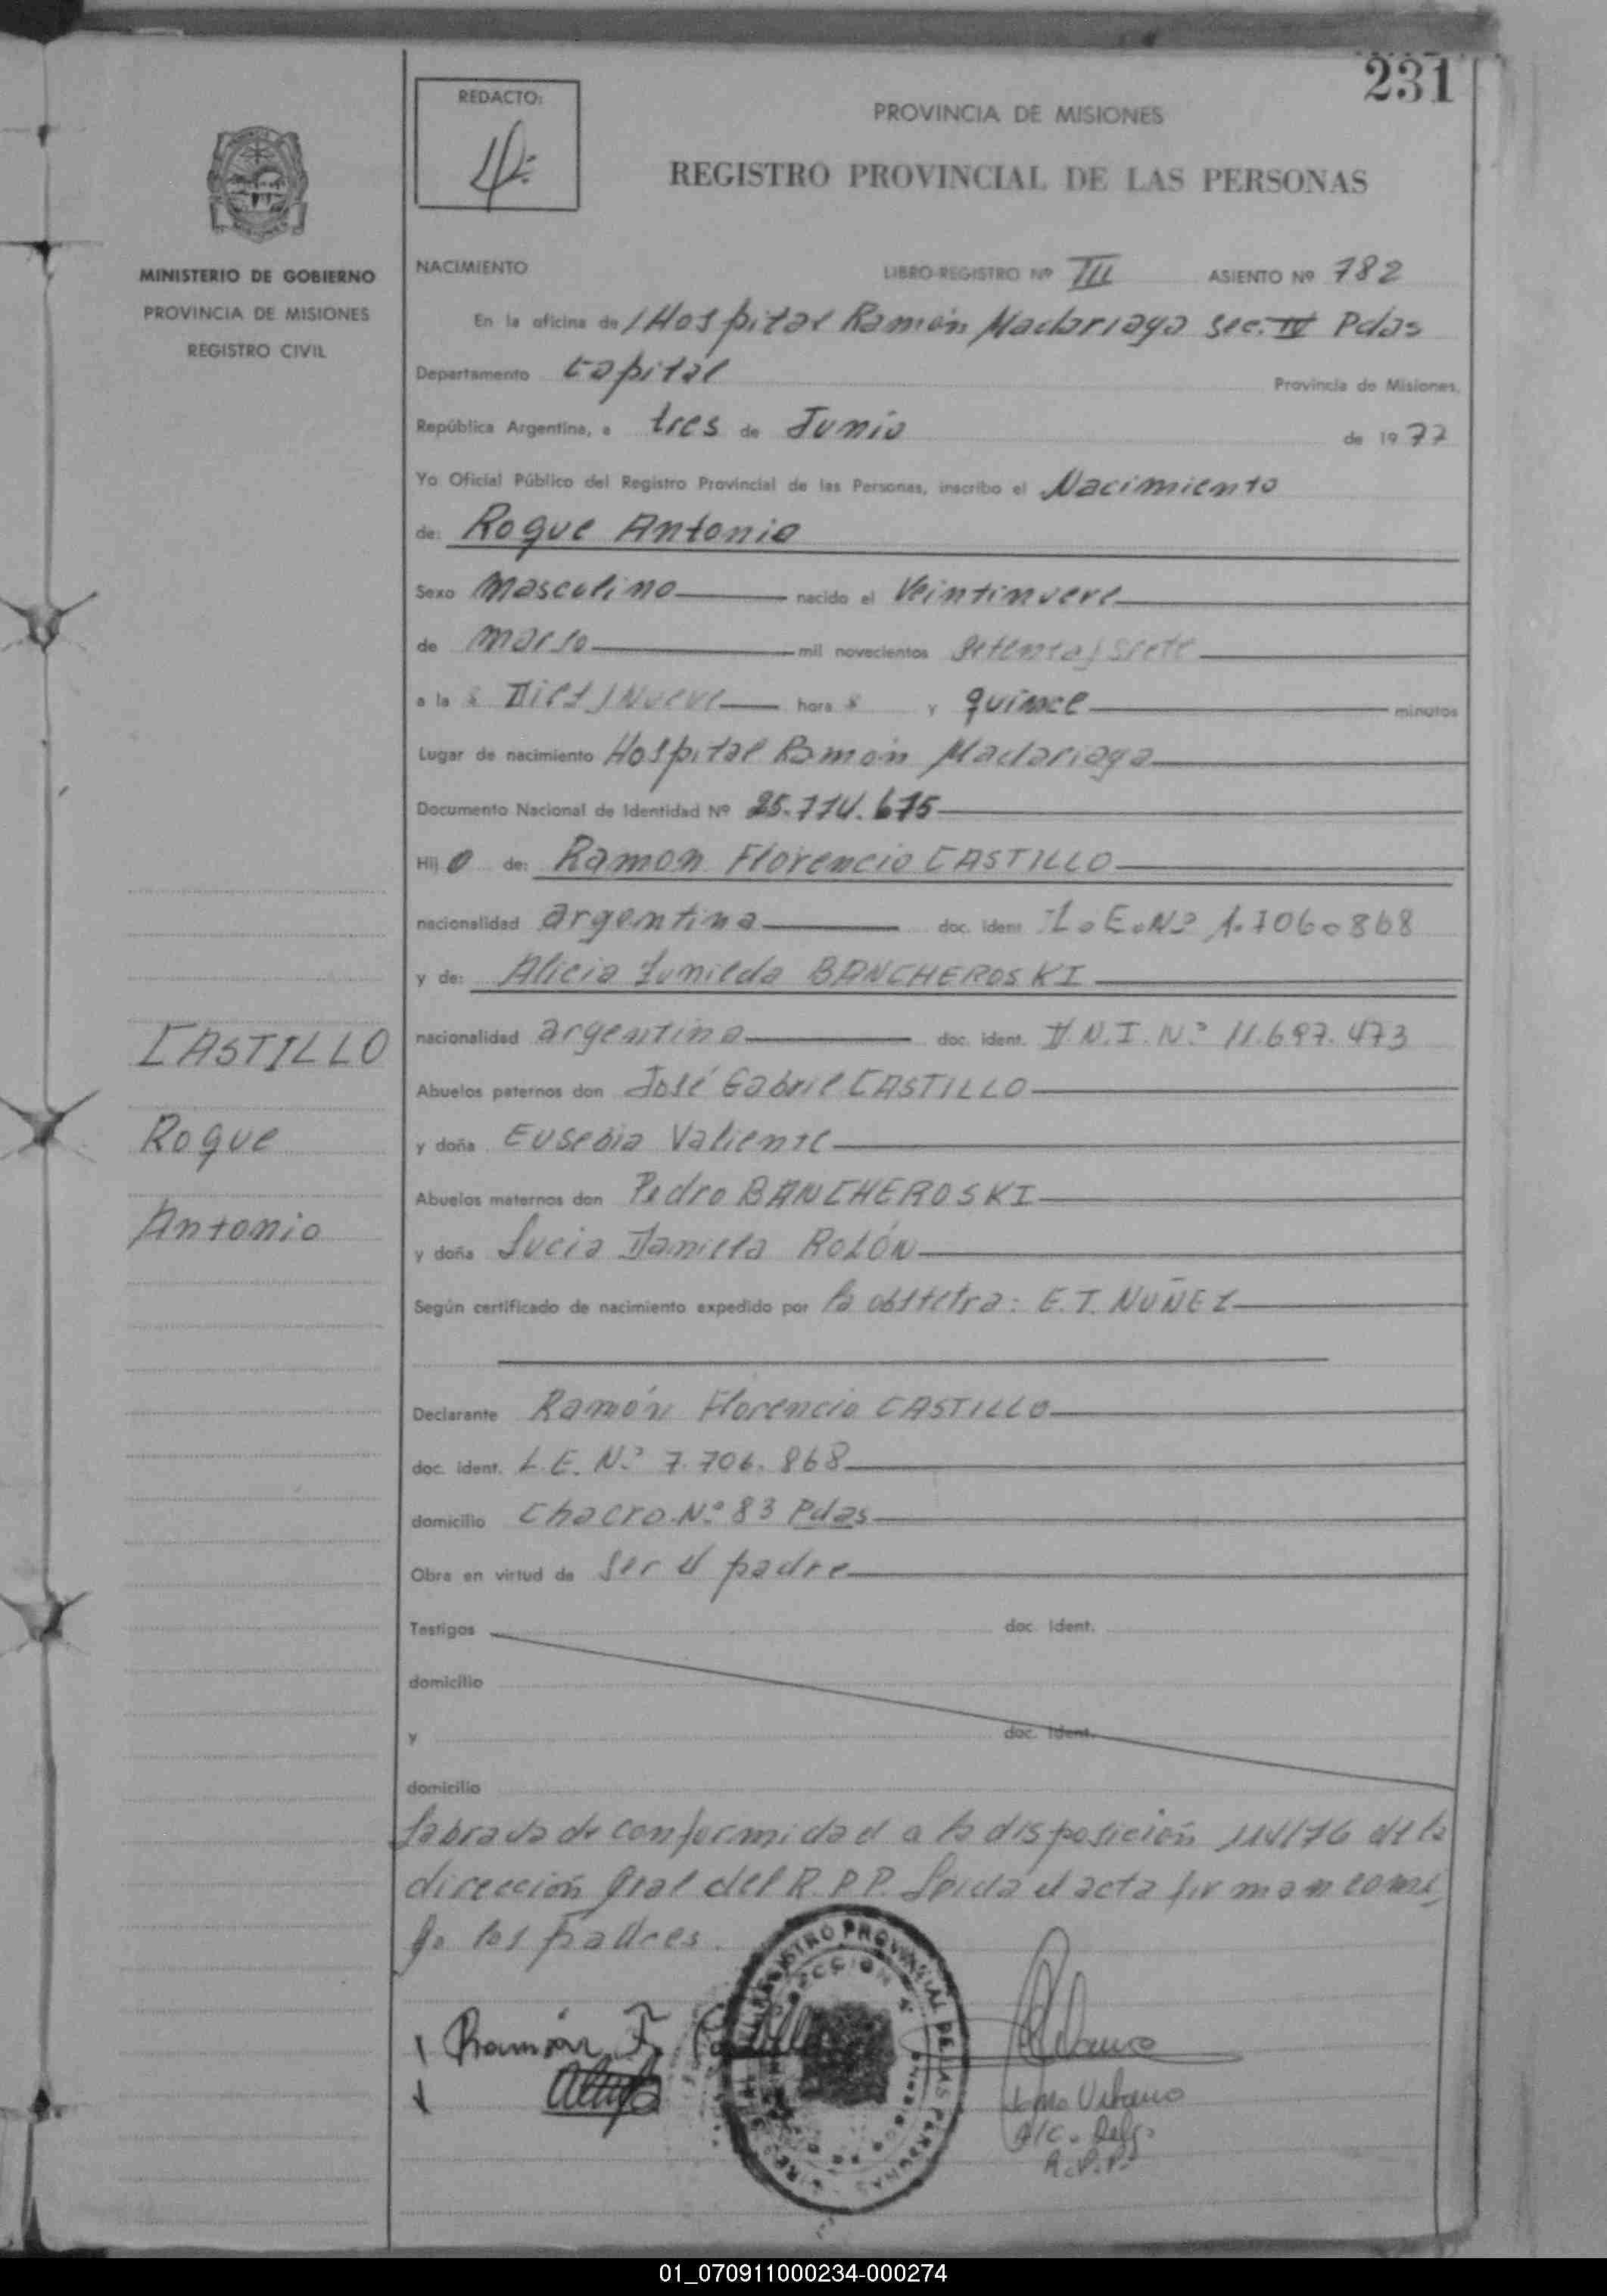 231
REDACTO:
PROVINCIA DE MISIONES
REGISTRO PROVINCIAL DE LAS PERSONAS
MINISTERIO DE GOBIERNO
PROVINCIA DE MISIONES
REGISTRO CIVIL
NACIMIENTO LIBRO-REGISTRO Nº III ASIENTO Nº 782
En la oficina de Hospital Ramón Madariaga sec. IV Pdas
Departamento Capital Provincia de Misiones,
República Argentina, a tres de Junio de 1977
Yo Oficial Público del Registro Provincial de las Personas, inscribo el Nacimiento
de: Roque Antonio
Sexo Masculino nacido el Veintinueve
de marzo mil novecientos setenta y siete
a las Diez y Nueve horas y quince minutos
Lugar de nacimiento Hospital Ramón Madariaga
Documento Nacional de Identidad Nº 25.714.675
Hijo de: Ramon Florencio CASTILLO
nacionalidad argentina doc. ident L.E.Nº 7.706.868
y de: Alicia Zunilda BANCHEROSKI
nacionalidad argentina doc. ident. D.N.I. Nº 11.697.473
Abuelos paternos don José Gabriel CASTILLO
y doña Eusebia Valiente
Abuelos maternos don Pedro BANCHEROSKI
y doña Lucia Daniela ROLÓN
Según certificado de nacimiento expedido por la obstetra: E.T. NUÑEZ
Declarante Ramón Florencio CASTILLO
doc. ident. L.E. Nº 7.706.868
domicilio Chacra Nº 83 Pdas
Obra en virtud de ser el padre
Testigos doc. ident.
domicilio
y doc. ident.
domicilio
CASTILLO
Roque
Antonio
Labrada de conformidad a la disposición 114/76 de la
dirección Gral del R.P.P. Leida el acta firman conmi
go los padres.
Ramón F. Castillo
REGISTRO PROVINCIAL DE LAS PERSONAS
SECCION 4
MISIONES
Urbano
A/C. Deleg.
R.P.P.
01_070911000234-000274